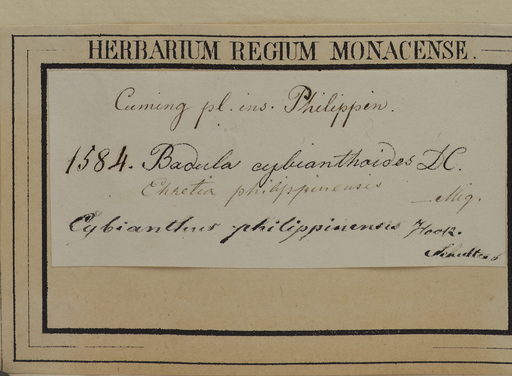 HERBARIUM REGIUM MONACENSE.
Cuming pl. ins. Philippin.
1584. Badula cybianthoides DC.
Ehretia philippinensis
Miq.
Cybianthus philippinensis Hook.